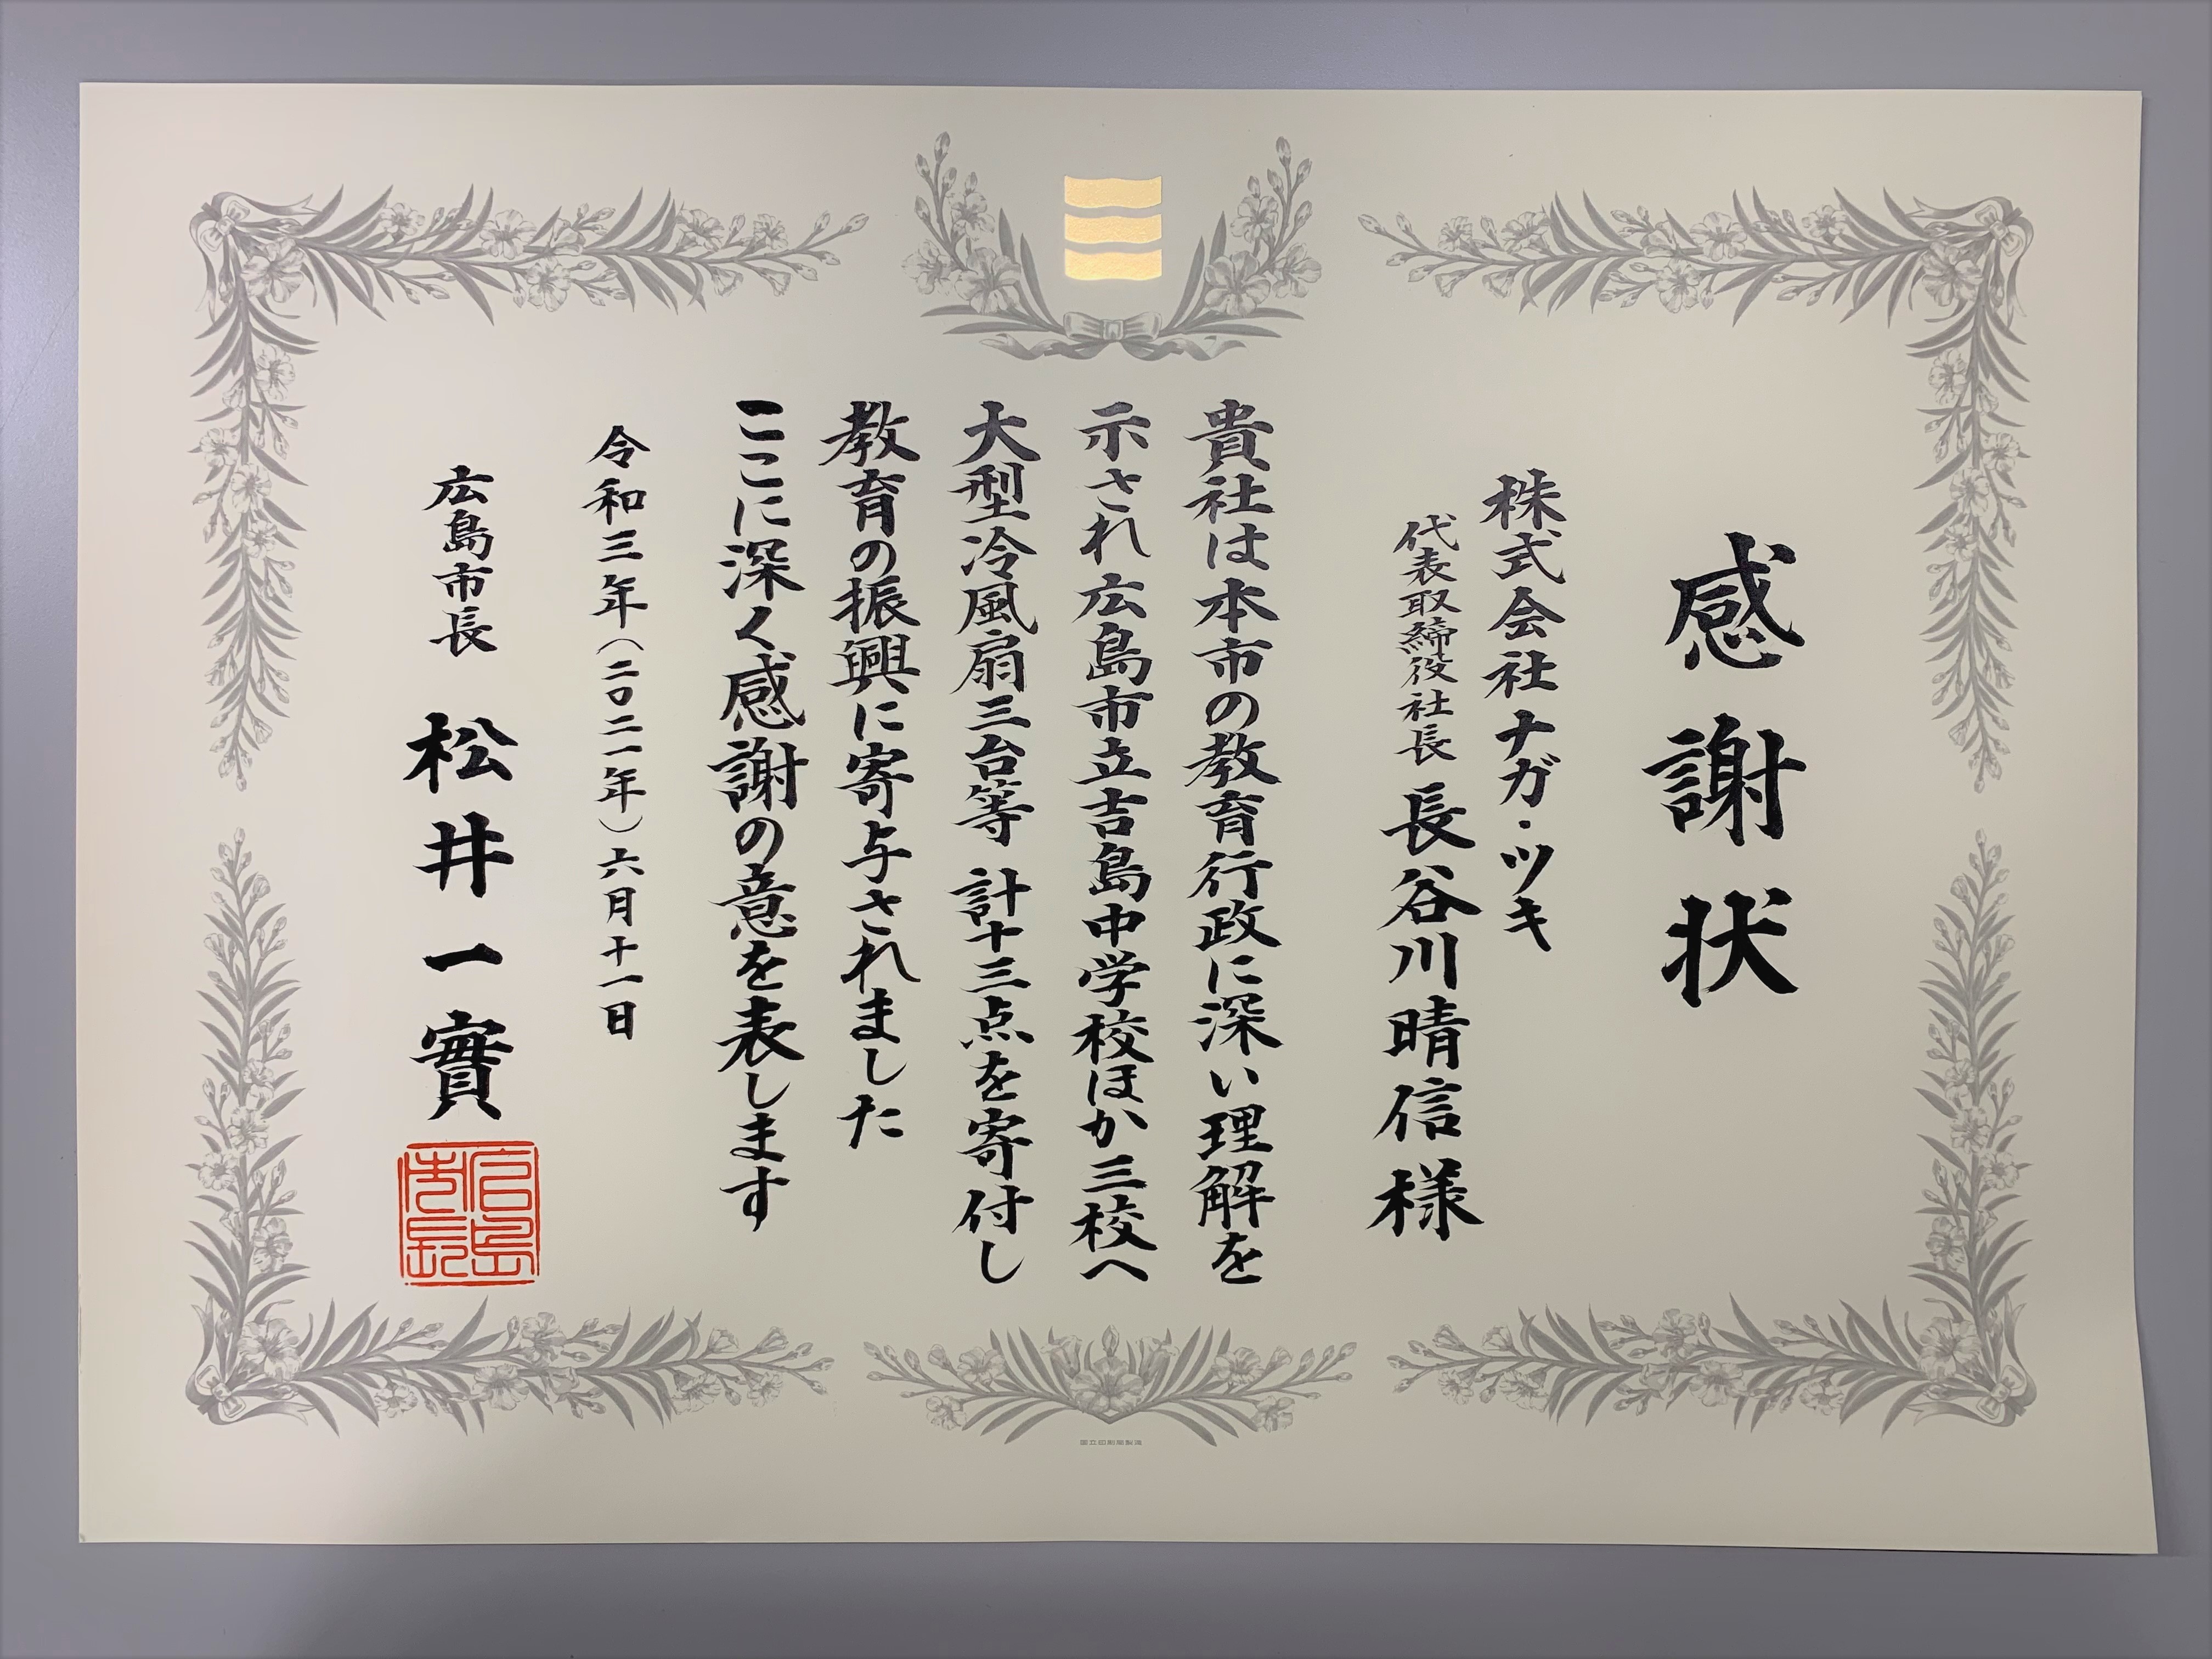 感謝状
株式会社ナガ・ツキ
代表取締役社長 長谷川晴信様
貴社は本市の教育行政に深い理解を
示され広島市立吉島中学校ほか三校へ
大型冷風扇三台等 計十三点を寄付し
教育の振興に寄与されました
ここに深く感謝の意を表します
令和三年(二〇二一年)六月十一日
広島市長 松井一實
広島市長
国立印刷局製造